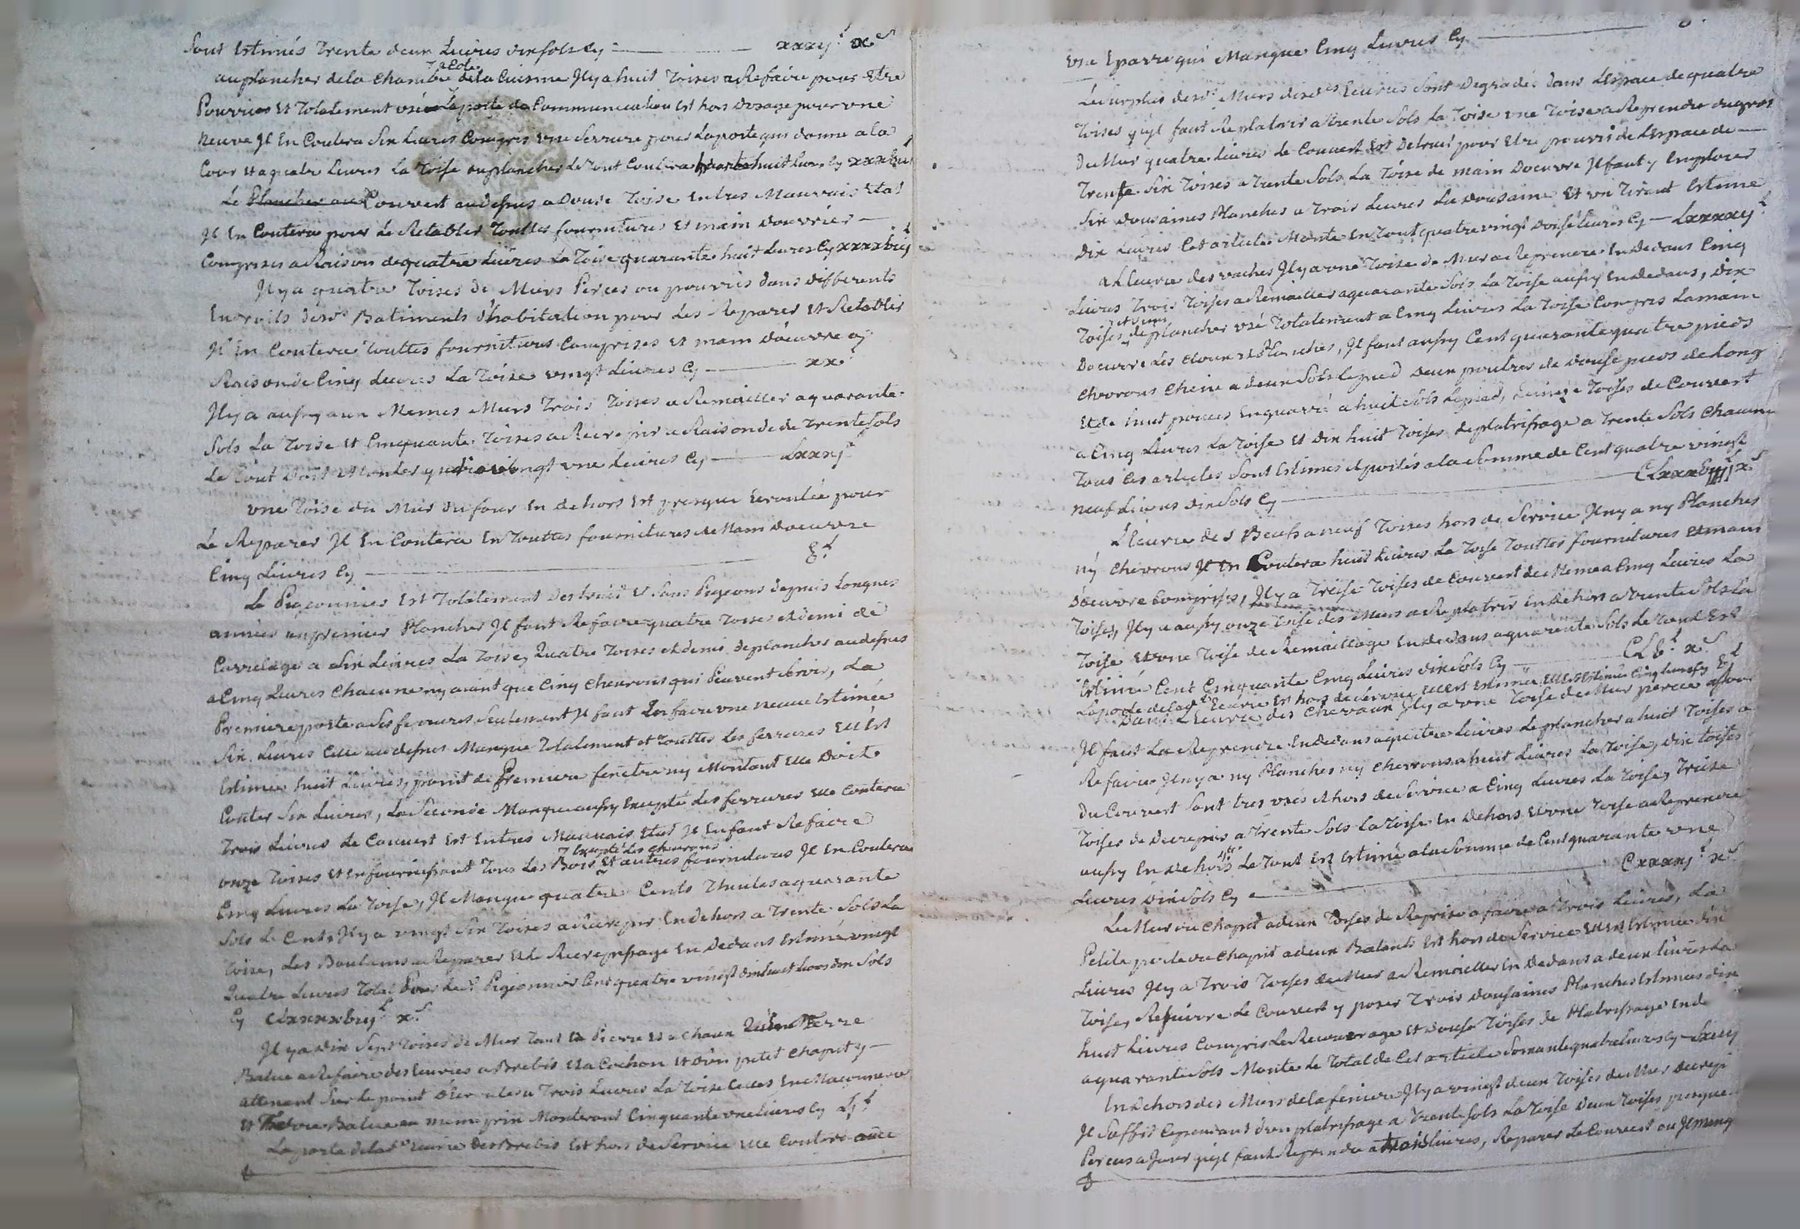 sont Estimés trente deux Livres dix sols Cy — xxxij.ᵗ x.ˢ
au plancher de la chambre a Coté de la Cuisine Jl y a huit Toises a Refaire pour Etre
Pourries Et Totalement usées La porte de Communication Est hors dusage pour une
neuve Jl En Coutera Six Livres Compris une Serrure pour La porte qui donne a la
Cour Et a quatre Livres La Toise au plancher Le Tout Coutera trente huit livres Cy xxxbiijᵗ
Le Plancher au Couvert au desus a Douse Toise En tres Mauvais Etat
Jl En Coutera pour Le Retablir Touttes fournitures Et main douvrier —
Comprises a Raison de quatre Livres La Toise quarante huit Livres Cy xxxxbiijᵗ
Jl y a quatre Toises de Murs Percés ou pourris dans differents
Endroits desdᵗˢ Batiments d'habitation pour Les Reparer Et Retablir
Jl En Coutera Touttes fournitures Comprises Et main d'oeuvre a
Raison de Cinq Livres La Toise vingt Livres Cy — xxᵗ
Jl y a aussy aux Memes Murs Trois Toises a Remailler a quarante
Sols La Toise Et Cinquante Toises a Recrepir a Raison de de trente sols
Le Tout doit Monter quatre vingt une Livres Cy — Lxxxjᵗ
une Toise du Mur du four En dehors Est presque Ecroulée pour
Le Reparer Jl En Coutera En Touttes fournitures de Main doeuvre
Cinq Livres Cy — bᵗ
Le Pigeonnier Est Totalement destruit Et Sans Pigeons depuis Longues
années au premier Plancher Jl faut Refaire quatre Toises et demi de
Carrelage a Six Livres La Toise, Quatre Toises et demi de planches au desus
a Cinq Livres Chacune ny aiant que Cinq Chevrons qui Peuvent Servir, La
Premiere porte a Ses ferrures Seulement Jl faut En faire une neuve Estimée
Six Livres Celle au desus Manque Totalement et Touttes Les ferrures Elle Est
Estimée huit Livres, point de Premiere fenetre ny Montant Elle Doit
Couter Six Livres, La Seconde Manque aussy Excepté Les ferrures Elle Coutera
Trois Livres Le Couvert Est En tres Mauvais Etat Jl En faut Refaire
onze Toises Et En fournissant Tous Les Bois Excepté Les chevrons Et autres fournitures Jl En Coutera
Cinq Livres La Toise, Jl Manque quatre Cents Thuiles a quarante
Sols Le Cent, Jl y a vingt Six Toises a Recrepir En dehors a Trente Sols La
Toise, Les a Reparer Et Le Recrepissage En dedans Estimé vingt
Quatre Livres Total Pour Ledᵗ Pigeonnier Cent quatre vingt dix huit livres dix Sols
Cy CLxxxxbiijᵗ xˢ
Jl y a dix Sept Toises de Mur Tant En Pierre Et a Chaux Terre
Batue a Refaire des Ecuries a Brebis Et a Cochon Et dun petit Chapit y —
attenant Sur Le point a Trois Livres La Toise Celles En Maconnerie
Et Terre Batue au meme prix Montront Cinquante une livres Cy Ljᵗ
La porte de Ladᵗᵉ Ecurie des Brebis Est hors de Service Elle Coutera avec
une Eparre qui Manque Cinq Livres Cy —
Le Surplus desdᵗˢ Murs desdᵗᵉˢ Ecuries Sont Degradés dans L'espace de quatre
Toises quil faut Replatrir a trente Sols La Toise une Toise a Reprendre au gros
du Mur quatre livres Le Couvert Est Detruit pour Etre pourri de L'espace de —
Trente Six Toises a Trente Sols La Toise de main Doeuvre Jl faut y Employer
Six dousaines Planches a Trois Livres La dousaine Et un Tirant Estimé
Dix Livres Cet article Monte En tout quatre vingt douse Livres Cy — Lxxxxijᵗ
a L'Ecurie des vaches Jl y a une Toise de Mur a Reprendre En dedans Cinq
Livres Trois Toises a Remailler a quarante Sols La Toise aussy En dedans, Dix
Toises et demi de plancher usé Totalement a Cinq Livres La Toise Compris La main
Doeuvre Les Cloux Et Planches, Jl faut aussy Cent quarante quatre pieds
chevrons Chene a deux Sols Le pied deux poutres de douse pieds de Long
Et de huit pouces En quarré a huit Sols Le pied, Toises de Couvert
a Cinq Livres La Toise Et dix huit Toises de platrissage a Trente Sols Chacune
Tous Ces articles Sont Estimés Et portés a la Somme de Cent quatre vingt
neuf Livres dix Sols Cy — xˢ
L'Ecurie des Beufs a neuf Toises hors de Service Jl ny a ny Planches
ny chevrons Jl En Coutera huit Livres La Toise Touttes fournitures Et main
Doeuvre Comprises, Jl y a Treise Toises de Couvert de Meme a Cinq Livres La
Toise, Jl y a aussy onze Toise des Murs a Replatrir En dehors a trente Sols La
Toise Et une Toise de Remaillage En dedans a quarante Sols Le Tout Est
Estimé Cent Cinquante Cinq Livres dix Sols Cy — CLbᵗ xˢ
La porte de Ladᵗᵉ Ecurie Est hors de Service Elle Est Estimée Cinq Livres Cy bᵗ
Dans L'Ecurie des Chevaux Jl y a une Toise de Mur percée a Jour
Jl faut La Reprendre En dedans a quatre Livres Le plancher a huit Toises a
Refaire Jl ny a ny Planches ny Chevrons a huit Livres La Toise, dix toises
Du Couvert Sont tres usés Et hors de Service a Cinq Livres La Toise, Treise
Toises de Decrepis a Trente Sols La Toise En dehors Et une Toise a Reprendre
aussy En dehors Le Tout Est Estimé a la Somme de Cent quarante une
Livres dix Sols Cy — Cxxxxjᵗ xˢ
Le Mur du Chapit a deux Toises de Reprise a faire a Trois Livres, La
Petite porte du Chapit a deux Batants Est hors de Service Elle Est Estimée dix
Livres Jl y a Trois Toises de Mur a Remailler En Dedans a deux Livres La
Toise, Requierre Le Couvert y poser Trois dousaines Planches Estimées dix
huit Livres Compris Le Recouvrage Et douse Toises de Platrissage En de
a quarante Sols Monte Le Total de Cet article Soixante quatre Livres Cy — Lxiiijᵗ
En dehors des Murs de la feniere Jl y a vingt deux Toises de Mur Decrepi
Jl Suffit Cependant d'un platrissage a Trente Sols La Toise Deux Toises presque
Percées a Jour quil faut Reprendre a trois livres, Reparer Le Couvert ou Jl manq